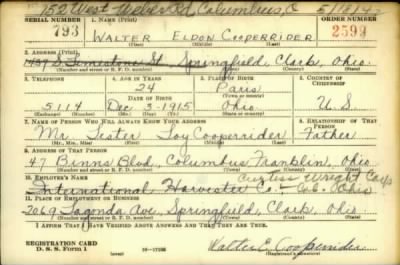 152 West Weber Rd. Columbus, O 51142
SERIAL NUMBER 1. NAME (Print) ORDER NUMBER
793 WALTER ELDON COOPERRIDER 2599
(First) (Middle) (Last)
2. ADDRESS (Print)
S. Limestone St. Springfield, Clark, Ohio.
(Number and street or R. F. D. number) (Town) (County) (State)
3. TELEPHONE 4. AGE IN YEARS 5. PLACE OF BIRTH 6. COUNTRY OF CITIZENSHIP
24 Paris
DATE OF BIRTH
5114 Dec 3-1915 Ohio. U. S.
(Exchange) (Number) (Mo.) (Day) (Yr.) (State or country)
7. NAME OF PERSON WHO WILL ALWAYS KNOW YOUR ADDRESS 8. RELATIONSHIP OF THAT PERSON
Mr. Lester Toy Cooperrider Father
(Mr., Mrs., Miss) (First) (Middle) (Last)
9. ADDRESS OF THAT PERSON
47 Binns Blvd, Columbus Franklin, Ohio
(Number and street or R. F. D. number) (Town) (County) (State)
10. EMPLOYER'S NAME Curtiss Wright Corp
International Harvester Co. Ohio
11. PLACE OF EMPLOYMENT OR BUSINESS
2069 Lagonda Ave, Springfield, Clark, Ohio
(Number and street or R. F. D. number) (Town) (County) (State)
I AFFIRM THAT I HAVE VERIFIED ABOVE ANSWERS AND THAT THEY ARE TRUE.
REGISTRATION CARD
D. S. S. Form 1 16-17105 Walter E. Cooperrider
(Registrant's signature)